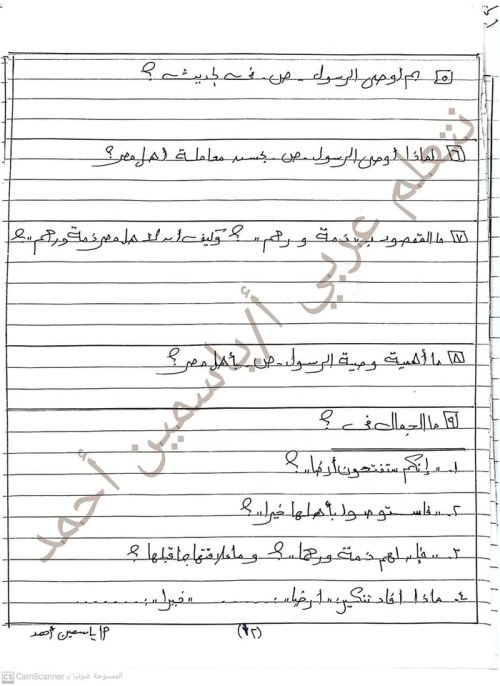 ٥ بم أوصى الرسول - ص - فى الحديث ؟
٦ لماذا أوصى الرسول - ص - بحسن معاملة أهل مصر ؟
٧ ما المقصود بـ "ذمة و رحم" ؟ وكيف أن لأهل مصر ذمة ورحم" ؟
٨ ما أهمية وصية الرسول - ص - بأهل مصر ؟
٩ ما الجمال فى ؟
١. "إنكم ستفتحون أرضا" ؟
٢. "فاستوصوا بأهلها خيرا" ؟
٣. "فإن لهم ذمة ورحما" ؟ وما علاقتها بما قبلها ؟
٤. ماذا أفاد تنكير "أرضا": ........ "خيرا": ........
أ/ ياسمين أحمد
(١٢)
نتعلم عربي أ/ياسمين أحمد
CS CamScanner الممسوحة ضوئيا بـ